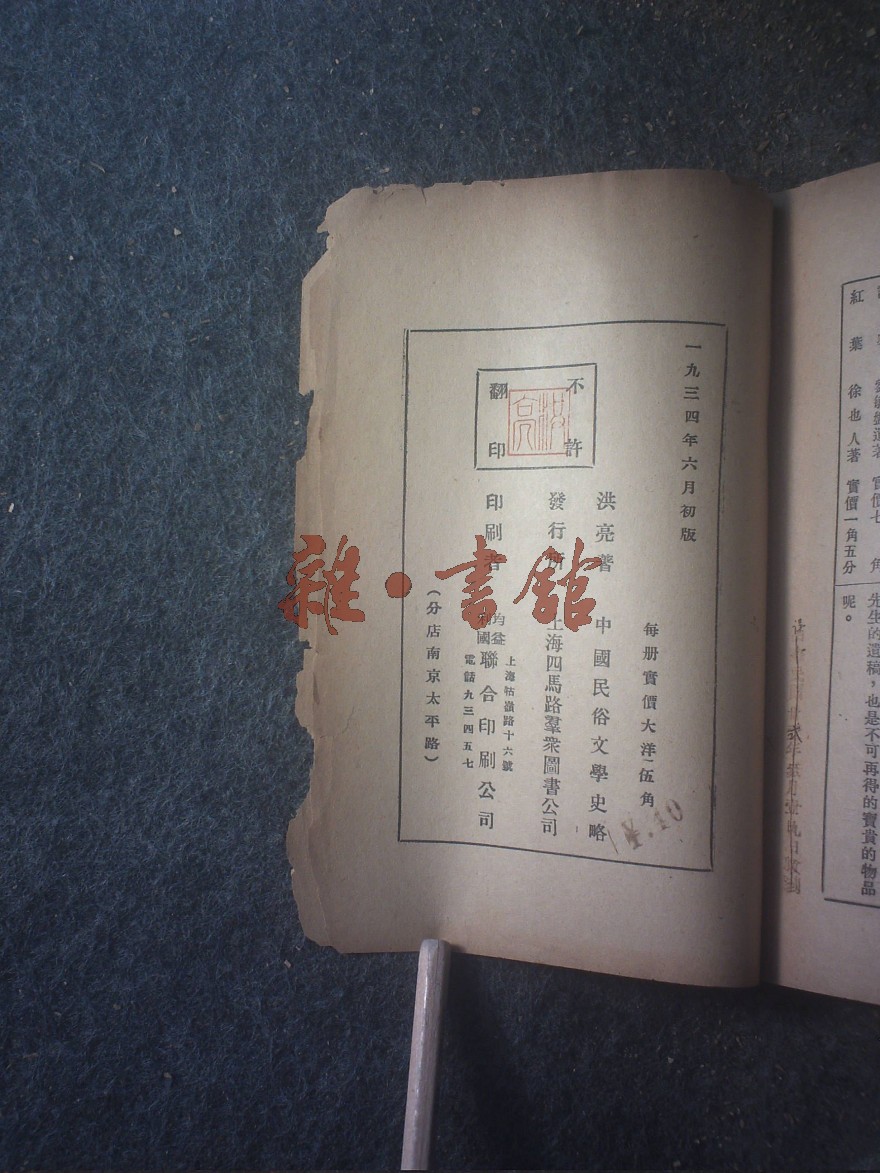 紅葉 徐也人著 實價一角五分
先生的遺稿，也是不可再得的寶貴的物品
呢。
一九三四年六月初版
每册實價大洋伍角
洪亮著 中國民俗文學史略
發行所 上海四馬路羣衆圖書公司
印刷者 均益利國聯合印刷公司
上海牯嶺路十六號
電話九三四五七
（分店南京太平路）
不許
翻印
洪亮
¥.10
雜·書館